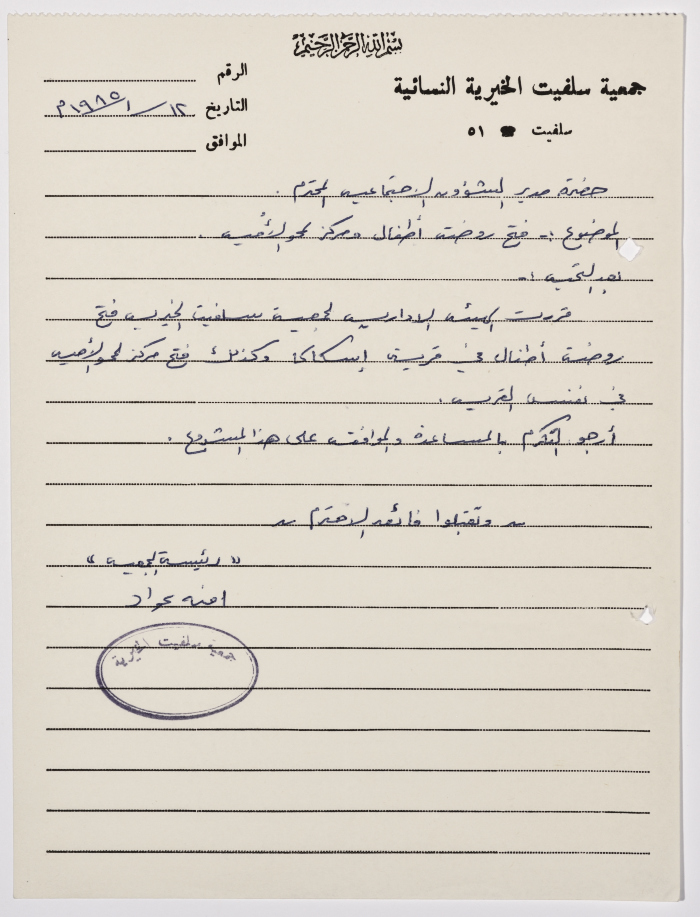 بسم الله الرحمن الرحيم
جمعية سلفيت الخيرية النسائية
سلفيت ☎ ٥١
الرقم
التاريخ ١٢/١/١٩٨٥م
الموافق
حضرة مدير الشؤون الاجتماعية المحترم .
الموضوع :- فتح روضة أطفال ومركز لمحو الأمية .
بعد التحية :-
قررت الهيئة الادارية لجمعية سلفيت الخيرية فتح
روضة أطفال في قرية إسكاكا وكذلك فتح مركز لمحو الأمية
في نفس القرية .
أرجو التكرم بالمساعدة والموافقة على هذا المشروع .
وتقبلوا فائق الاحترام
" رئيسة الجمعية "
امنه عواد
جمعية سلفيت الخيرية